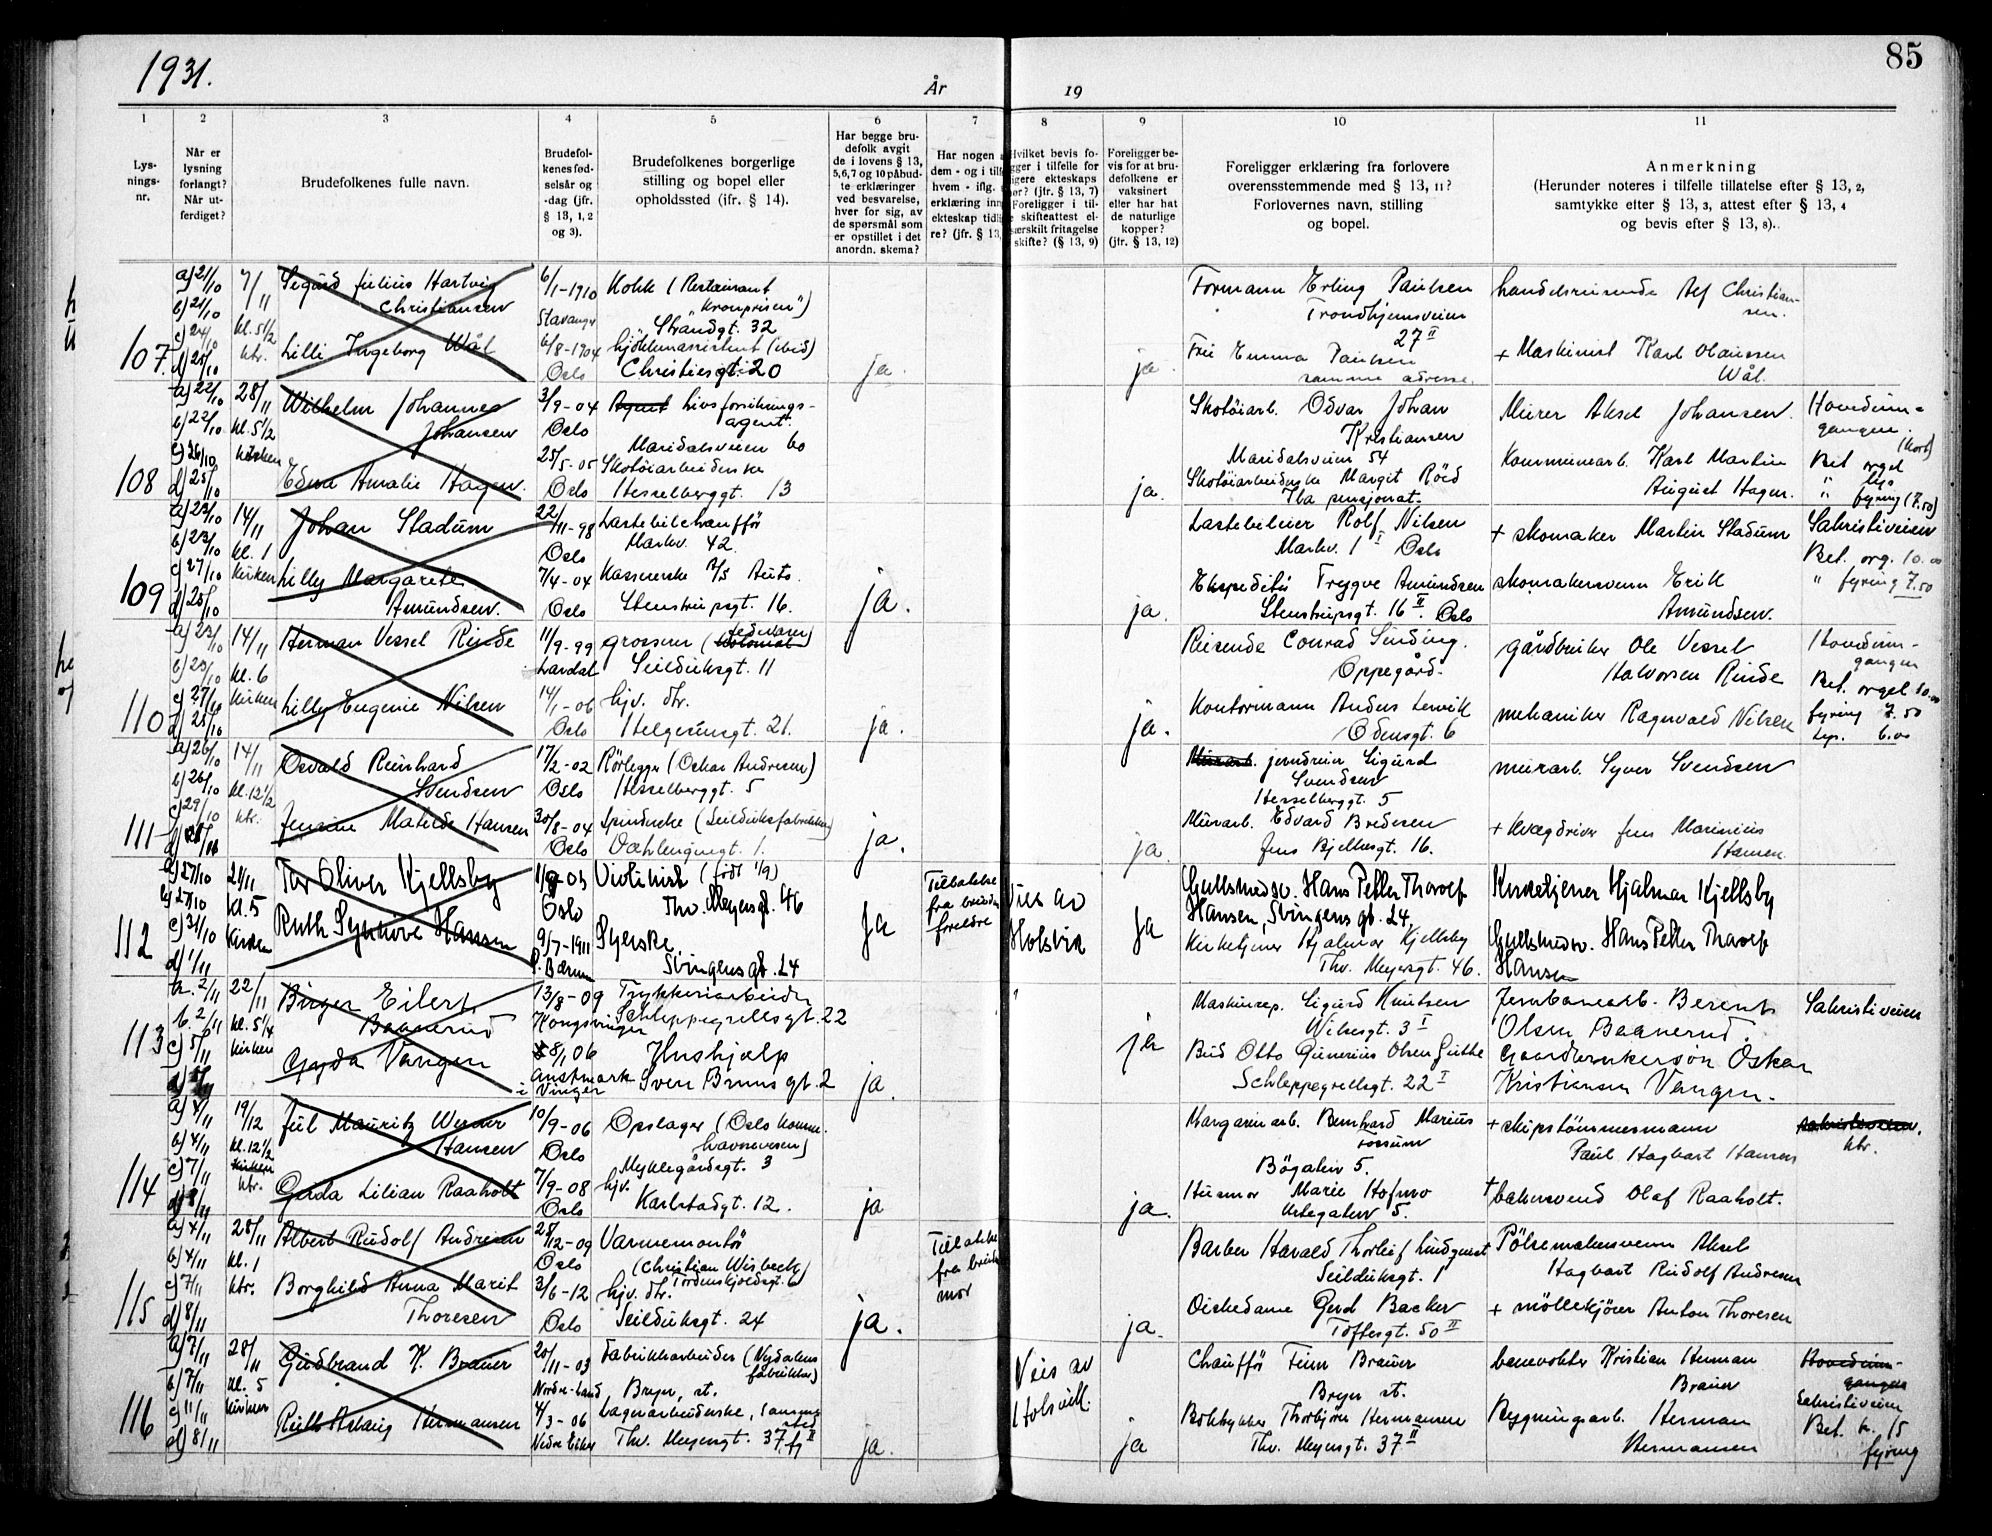 1931.
År
19
85
1
2
3
4
5
6
7
8
9
10
11
Lys-
nings-
nr.
Når er
lysning
forlangt?
Når ut-
ferdiget?
Brudefolkenes fulle navn.
Brudefol-
kenes fød-
selsår og
-dag (jfr.
§ 13, 1, 2
og 3).
Brudefolkenes borgerlige
stilling og bopel eller
opholdssted (ifr. § 14).
Har begge bru-
defolk avgit
de i lovens § 13,
5,6,7 og 10 påbud-
te erklæringer
ved besvarelse,
hver for sig, av
de spørsmål som
er opstillet i det
anordn. skema?
Har nogen a
dem - og i tilf
hvem - iflg.
erklæring inn
ekteskap tidli
re? (jfr. § 13,
Hvilket bevis fo-
gger i tilfelle for
igere ekteskaps
hør? (jfr. § 13, 7)
Foreligger i til-
skifteattest el-
særskilt fritagelse
skifte? (§ 13, 9)
Foreligger be-
vis for at bru-
defolkene er
vaksinert
eller har hat
de naturlige
kopper?
(jfr. § 13, 12)
Foreligger erklæring fra forlovere
overensstemmende med § 13, 11?
Forlovernes navn, stilling
og bopel.
Anmerkning
(Herunder noteres i tilfelle tillatelse efter § 13, 2,
samtykke efter § 13, 3, attest efter § 13, 4
og bevis efter § 13, 8)..
107.
a) 21/10
b) 21/10
c) 24/10
d) 25/10
7/11
kl. 5 1/2
ktr.
Sigurd Julius Hartvig
Christiansen
Lilli Ingeborg Wål
6/1-1910
Stavanger
6/8-1904
Oslo
Kokk (Restaurant
"Kronprisen")
Strandgt. 32
kjökkenassistent (ibid)
Christiesgt. 20
ja.
ja
Formann Erling Paulsen
Trondhjemsveien
27 II
Fru Emma Paulsen
samme adresse.
handelsreisende Alf Christian-
sen.
+ Maskinist Karl Olaussen
Wål.
108
a) 22/10
b) 22/10
c) 26/10
d) 25/10
28/11
kl. 5 1/2
Kirken
Wilhelm Johannes
Johansen
Edna Amalie Hagen.
3/9-04
Oslo
25/5-05
Oslo
Agent Livsforsikrings-
agent.
Maridalsveien 60
Skotöiarbeiderske
Hesselberggt. 13
ja.
Skotöiarb. Odvar Johan
Kristiansen
Maridalsveien 54
Skotöiarbeiderske Margit Röed
Ila pensjonat.
Murer Aksel Johansen.
Kommunearb. Karl Martin
August Hagen.
Hovedinn-
gangen.
(kort)
Bet. orgel
" lys
" fyring (7.50)
109
a) 23/10
b) 23/10
c) 27/10
d) 25/10
14/11
kl. 1
Kirken
Johan Stadum
Lilly Margarete
Amundsen.
22/11-98
Oslo
7/4-04
Oslo
Lastebilchauffør
Markv. 42.
Kassererske A/S Auto.
Stenstrupsgt. 16.
ja.
ja.
Lastebileier Rolf Nilsen
Markv. 1 I Oslo
Ekspeditör Trygve Amundsen
Stenstrupsgt. 16 II. Oslo
+ skomaker Martin Stadum
skomakersvenn Erik
Amundsen.
Sakristiveien
Bet. org. 10.00
" fyring 7.50
110
a) 23/10
b) 23/10
c) 27/10
d) 25/10
14/11
kl. 6
Kirken
Herman Vessel Rinde
Lilly Eugenie Nilsen
11/9-99
Lardal
14/1-06
Oslo
grosserer (
Seilduksgt. 11
hjv. dtr.
Helgesensgt. 21.
ja.
ja.
Reisende Conrad Sinding.
Oppegård.
Kontormann Anders Lervik
Odensgt. 6
gårdbruker Ole Vessel
Halvorsen Rinde
mekaniker Ragnvald Nilsen
Hovedinn-
gangen
Bet. orgel 10.00
fyring 7.50
lys. 6.00
111
a) 26/10
b) 26/10
c) 29/10
d)
14/11
kl. 12 1/2
ktr.
Osvald Reinhard
Svendsen
Jensine Matilde Hansen
17/2-02
Oslo
30/8-04
Oslo
Rörlegger (Oskar Andresen)
Hesselberggt. 5
Spinderske (Seilduksfabrikken)
Dæhlenggngt. 1.
ja.
ja
Murarb. jerndreier Sigurd
Svendsen
Hesselberggt. 5
Murarb. Edvard Bredesen
Jens Bjelkesgt. 16.
murarb. Syver Svendsen
+ kvægdriver Jens Marinius
Hansen
112
a) 27/10
b) 27/10
c) 31/10
d) 1/11
21/11
kl. 5
Kirken
Tor Oliver Kjellsby
Ruth Synnöve Hansen
1/9-03
Oslo
9/7-1911
Bærum
Violinist (født 1/9)
Thv. Meyersgt. 46
Syerske
Svingens gt. 24
Ja
Tillatelse
fra brudens
foreldre
Vies av
Holsvik
Ja
Gullsmedsv. Hans Petter Tharolf
Hansen, Svingens gt. 24,
Kirketjener Hjalmar Kjellsby
Thv. Meyersgt. 46.
Kirketjener Hjalmar Kjellsby
Gullsmedsv. Hans Petter Tharolf
Hansen
113
a. 2/11
b. 2/11
c) 5/11
22/11
kl. 5 1/4
Kirken
Birger Eilert
Baanerud
Gyda Vangen
13/8-09
Kongsvinger
8/1 06
Austmark
i Vinger
Trykkeriarbeider
Schleppegrellsgt. 22
Hushjælp
Sven Bruns gt. 2
ja.
ja
Maskinrep. Sigurd Knutsen
Wilsesgt. 3 I
Bud Otto Gunerius Olsen Guthe
Schleppegrellsgt. 22 I
Jernbanearb. Berent
Olsen Baanerud.
Gaardbrukersøn Oskar
Kristiansen Vangen.
Sakristiveien
114
a) 4/11
b) 4/11
c) 7/11
d) 8/11
19/12
kl. 12 1/2
Kirken
ktr.
Jul Mauritz Werner
Hansen
Gerda Lilian Raaholt
10/9-06
Oslo
7/9-08
Oslo
Opslager (Oslo komm.
havnevesen)
Myklegårdsgt. 3
hjv.
Karlstadgt. 12.
ja
ja.
Margarinarb. Bernhard Marius
Fossum
Bögaten 5.
Husmor Marie Hofmo
Urtegaten 5.
+ skipstömmermann
Paul Hagbart Hansen
+ bakersvend Olaf Raaholt.
Sakristiveien.
ktr.
115
a) 4/11
b) 4/11
c) 7/11
d) 8/11
28/11
kl. 1
ktr.
Albert Rudolf Andresen
Borghild Anna Marit
Thoresen
28/12-09
Oslo
3/6-12
Oslo
Varmemontör
(Christian Wisbeck
Tordenskjoldsgt. 6)
hjv. dtr.
Seilduksgt. 24
ja.
Tillatelse
fra brudens
mor
ja.
Barber Harald Thorleif Lindquist
Seilduksgt. 1
Diskedame Gerd Backer
Toftesgt. 50 II
Pölsemakersvenn Aksel
Hagbart Rudolf Andresen
+ möllekjörer Anton Thoresen
116
a) 7/11
b) 7/11
c) 11/11
d) 8/11
28/11
kl. 5
Kirken
Gudbrand K. Brauer
Ruth Aslaug Hermansen
20/11-03
Nordre-Land
4/3-06
Nedre Eiker
Fabrikkarbeider (Nydalens
fabrikker)
Bryn, st.
Lagerarbeiderske, samme
sted
Thv. Meyersgt. 37 II
ja.
Vies av
Holsvik.
ja
Chaufför Finn Brauer
Bryn st.
Bokhykker Thorbjörn Hermansen
Thv. Meyersgt. 37 II
banevokter Kristian Herman
Brauer
Bygningsarb. Herman
Hermansen
Hovedinn-
gangen
Sakristiveien
Bet. kr. 15
fyring